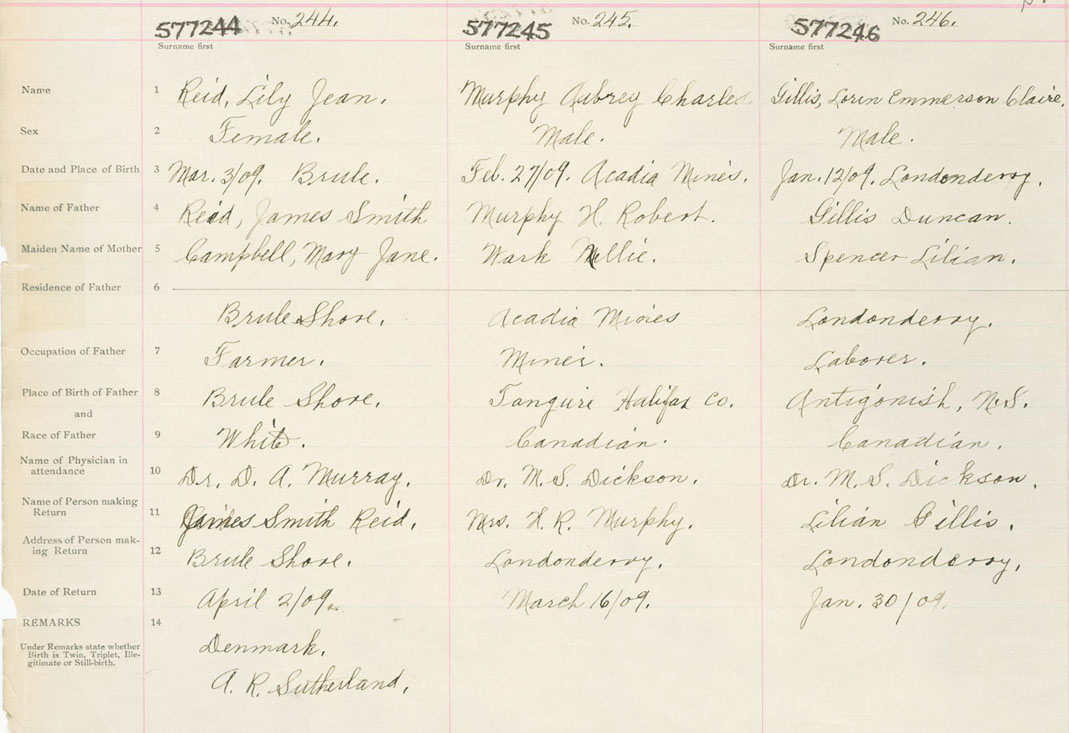 577244 No. 244. 577245 No. 245. 577246 No. 246.
Surname first Surname first Surname first
Name 1 Reid, Lily Jean. Murphy Aubrey Charles. Gillis, Lorin Emmerson Claire.
Sex 2 Female. Male. Male.
Date and Place of Birth 3 Mar. 3/09. Brule. Feb. 27/09. Acadia Mines. Jan. 12/09. Londonderry.
Name of Father 4 Reid, James Smith Murphy H. Robert. Gillis Duncan.
Maiden Name of Mother 5 Campbell, Mary Jane. Wark Nellie. Spencer Lilian.
Residence of Father 6
Brule Shore. Acadia Mines Londonderry.
Occupation of Father 7 Farmer. Miner. Laborer.
Place of Birth of Father 8 Brule Shore. Halifax Co. Antigonish, N.S.
and
Race of Father 9 White. Canadian. Canadian.
Name of Physician in
attendance 10 Dr. D. A. Murray. Dr. M. S. Dickson. Dr. M. S. Dickson.
Name of Person making
Return 11 James Smith Reid. Mrs. H. R. Murphy. Lilian Gillis.
Address of Person mak-
ing Return 12 Brule Shore. Londonderry. Londonderry.
Date of Return 13 April 2/09. March 16/09. Jan. 30/09.
REMARKS 14
Under Remarks state whether
Birth is Twin, Triplet, Ille-
gitimate or Still-birth.
Denmark.
A. R. Sutherland.